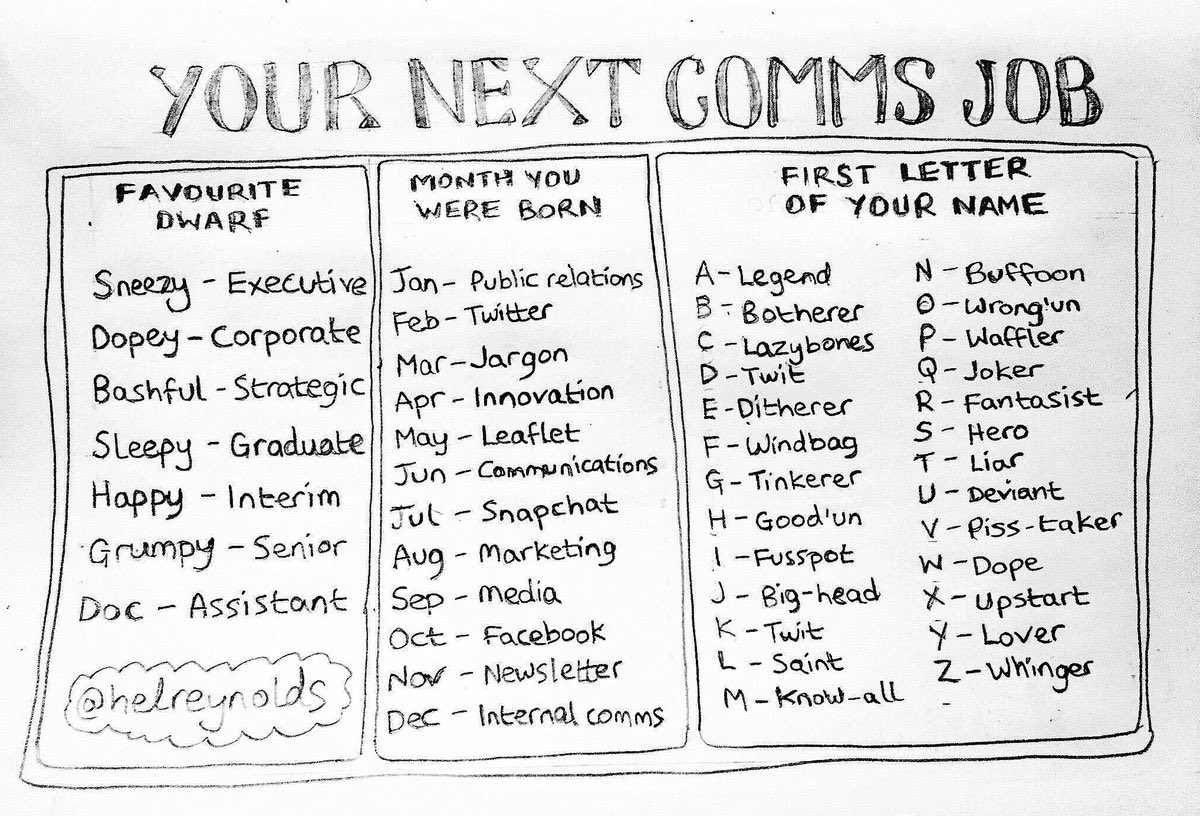 YOUR NEXT COMMS JOB
FAVOURITE
DWARF
Sneezy - Executive
Dopey - Corporate
Bashful - Strategic
Sleepy - Graduate
Happy - Interim
Grumpy - Senior
Doc - Assistant
@helreynolds
MONTH YOU
WERE BORN
Jan - Public relations
Feb - Twitter
Mar - Jargon
Apr - Innovation
May - Leaflet
Jun - Communications
Jul - Snapchat
Aug - Marketing
Sep - Media
Oct - Facebook
Nov - Newsletter
Dec - Internal comms
FIRST LETTER
OF YOUR NAME
A - Legend
B - Botherer
C - Lazybones
D - Twit
E - Ditherer
F - Windbag
G - Tinkerer
H - Good'un
I - Fusspot
J - Big-head
K - Twit
L - Saint
M - Know-all
N - Buffoon
O - Wrong'un
P - Waffler
Q - Joker
R - Fantasist
S - Hero
T - Liar
U - Deviant
V - Piss-taker
W - Dope
X - Upstart
Y - Lover
Z - Whinger